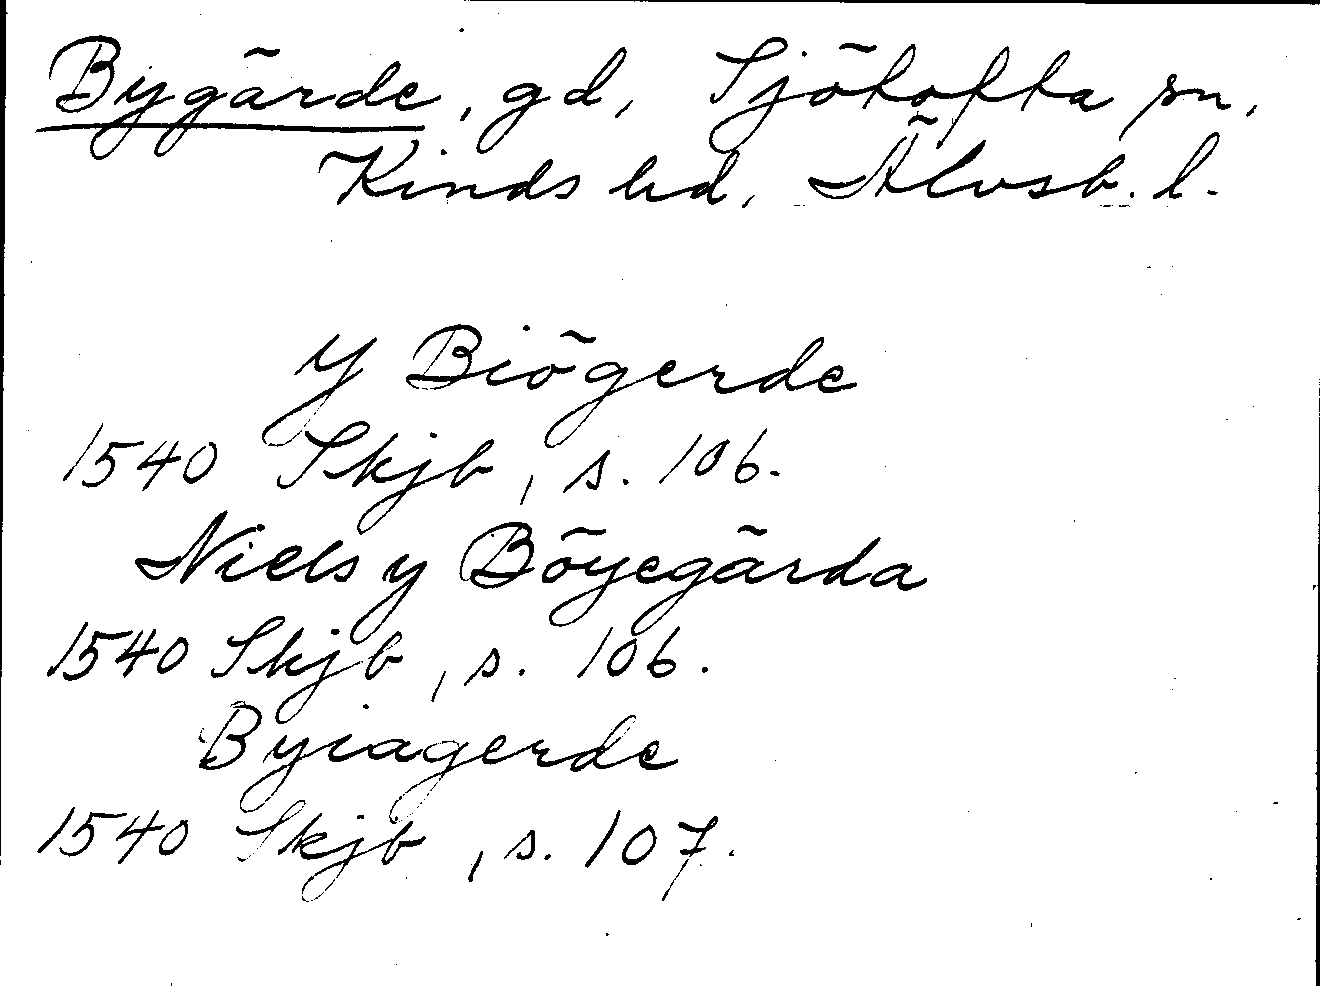 Bygärde, gd, Sjötofta sn,
Kinds hd, Älvsb. l.
y Biögerde
1540 Skjb, s. 106.
Niels y Böyegärda
1540 Skjb, s. 106.
Byiagerde
1540 Skjb, s. 107.